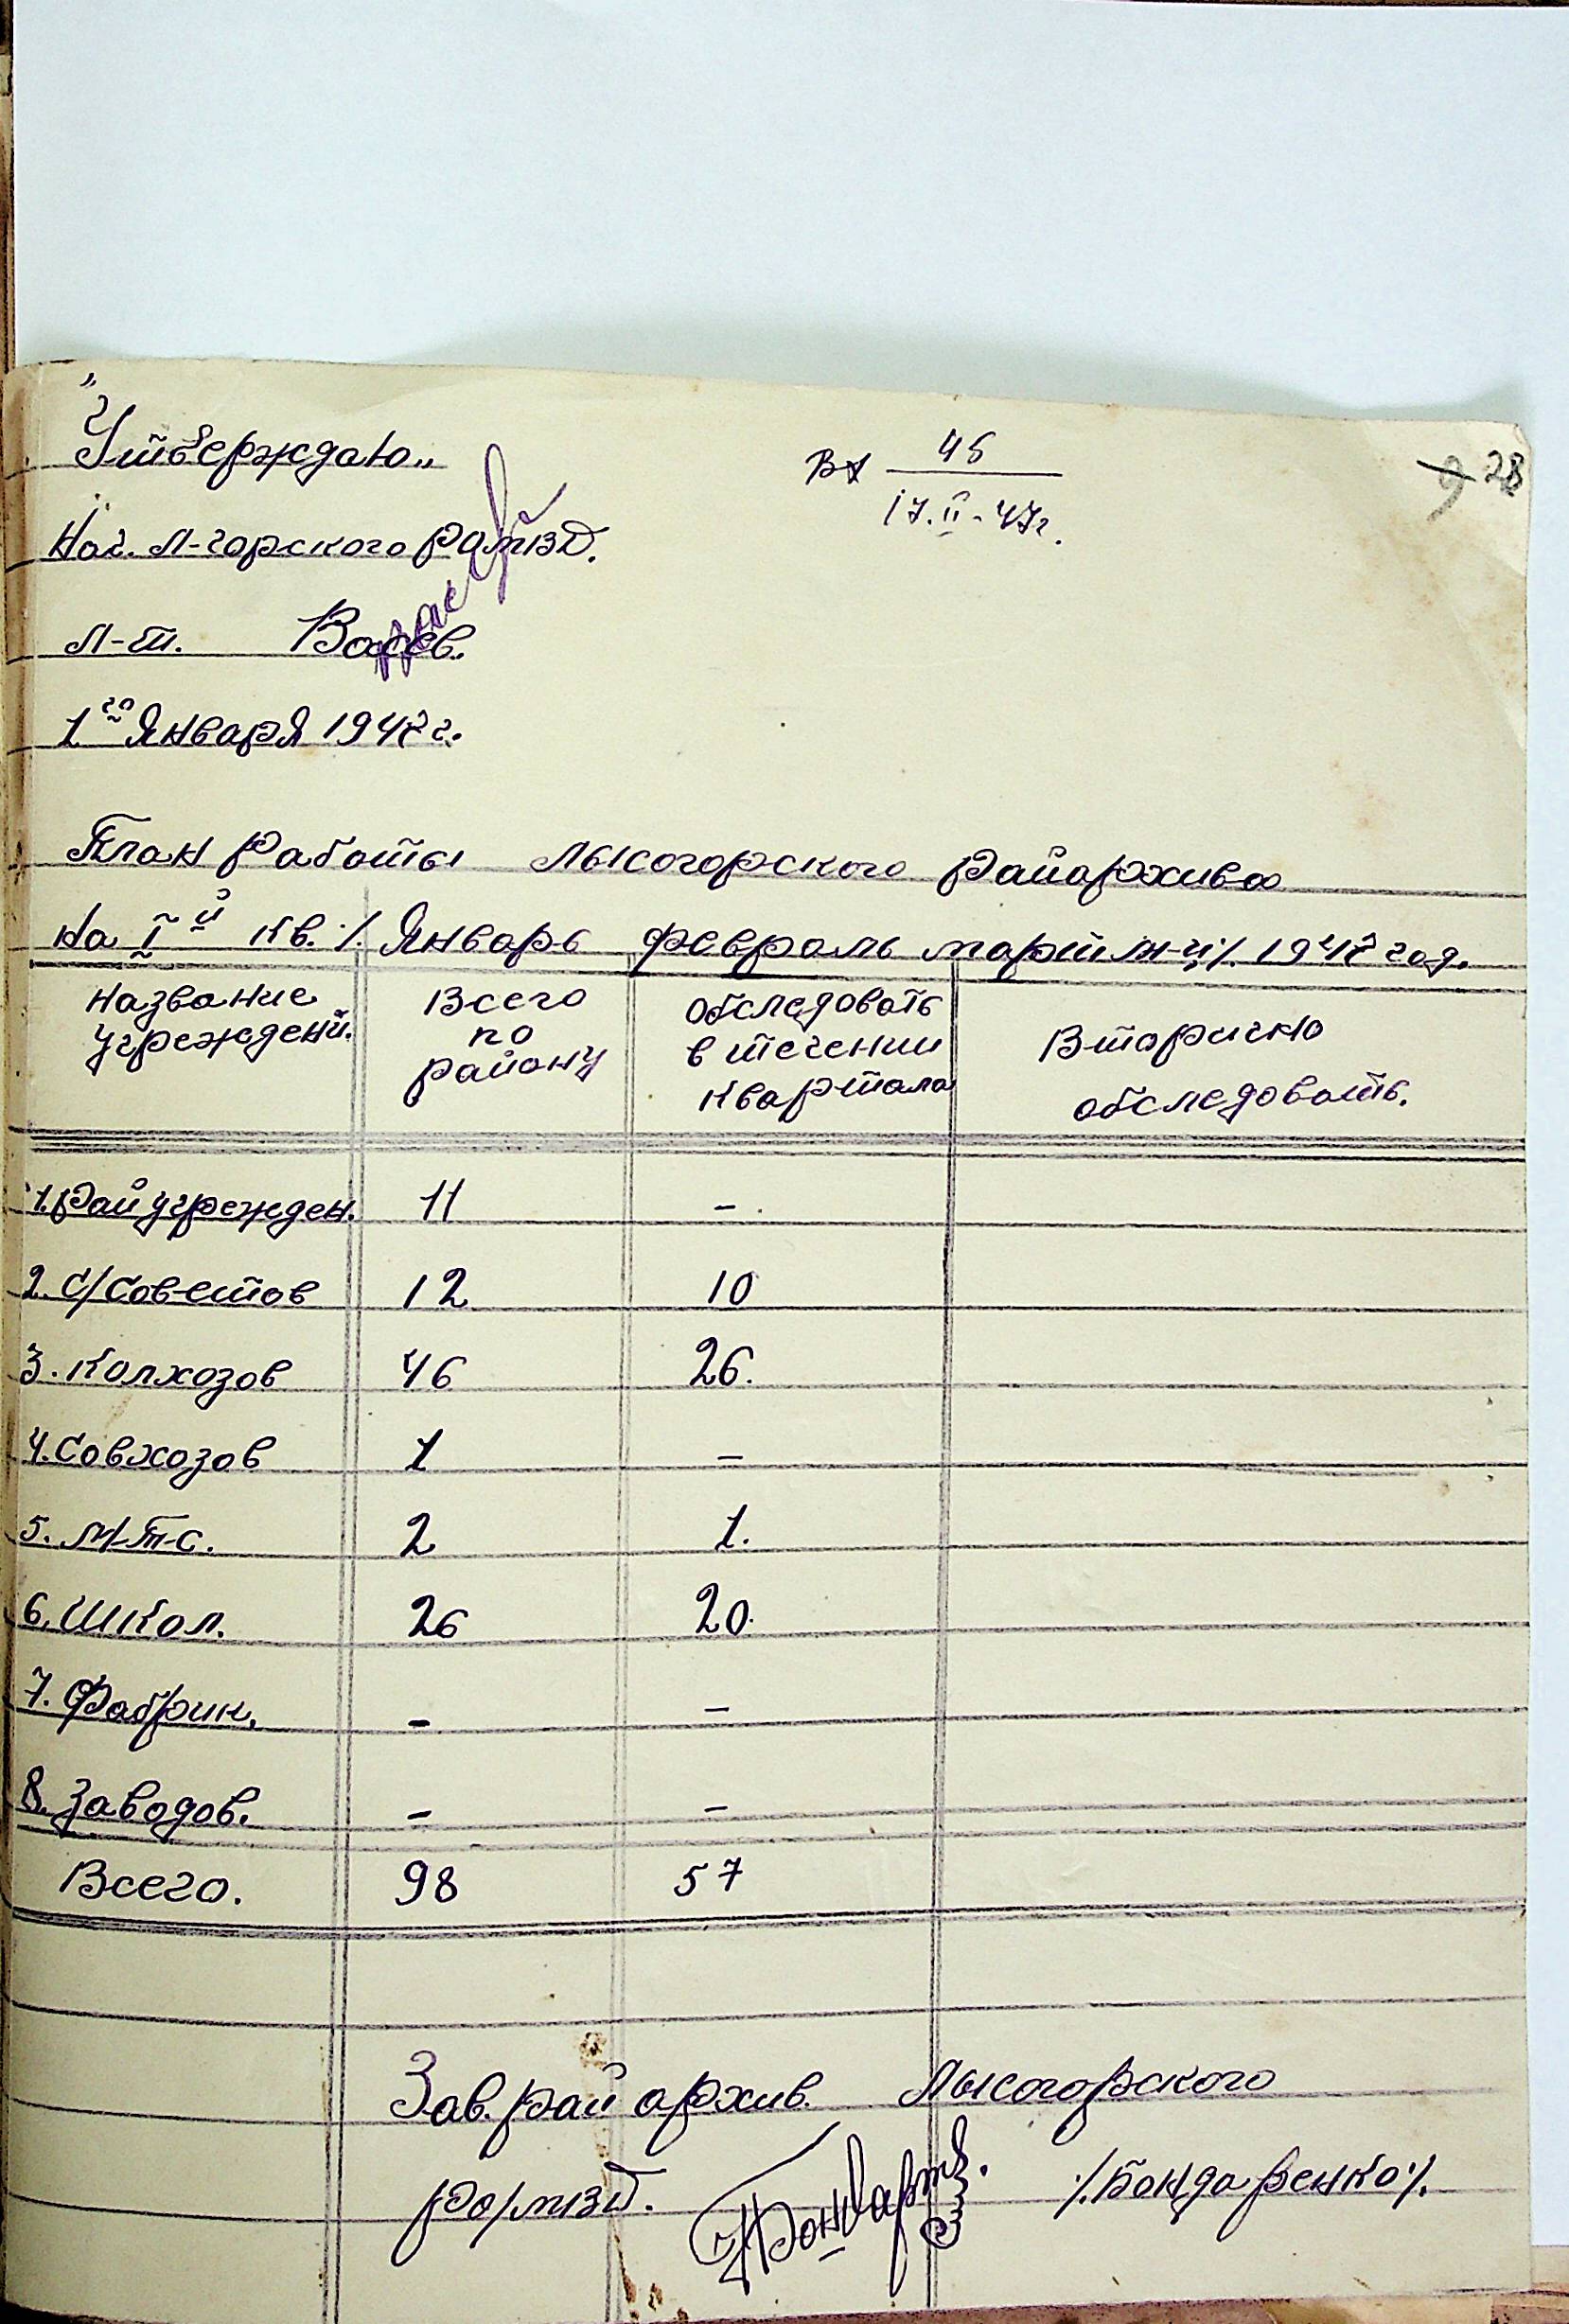 „Утверждаю„
Вх 45
17.II-47г.
28
Нач. Л-горского РОМВД.
Л-т.
1го Января 1947 г.
План работы Лысогорского райархива
на Iй кв. ∕. Январь февраль март м-ц ∕. 1947 год.
Название учрежден��й. Всего по району Обследовать в течении квартала Вторично обследовать.
1. Райучрежден. 11 -.
2. С/Советов 12 10
3. Колхозов 46 26.
4. Совхозов 1 -
5. М-Т-С. 2 1.
6. Школ. 26 20.
7. Фабрик. - -
8. Заводов. - -
Всего. 98 57
Зав. райархив. Лысогорского
РО/МВД. ∕.Бондаренко∕.